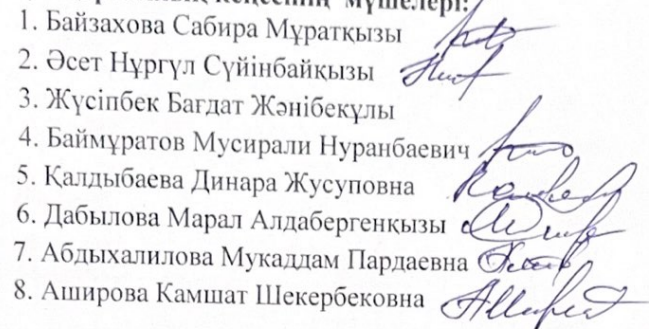 кеңесінің мүшелері:
1. Байзахова Сабира Мұратқызы
2. Әсет Нұргүл Сүйінбайқызы
3. Жүсіпбек Бағдат Жәнібекұлы
4. Баймұратов Мусирали Нуранбаевич
5. Қалдыбаева Динара Жусуповна
6. Дабылова Марал Алдабергенқызы
7. Абдыхалилова Мукаддам Пардаевна
8. Аширова Камшат Шекербековна